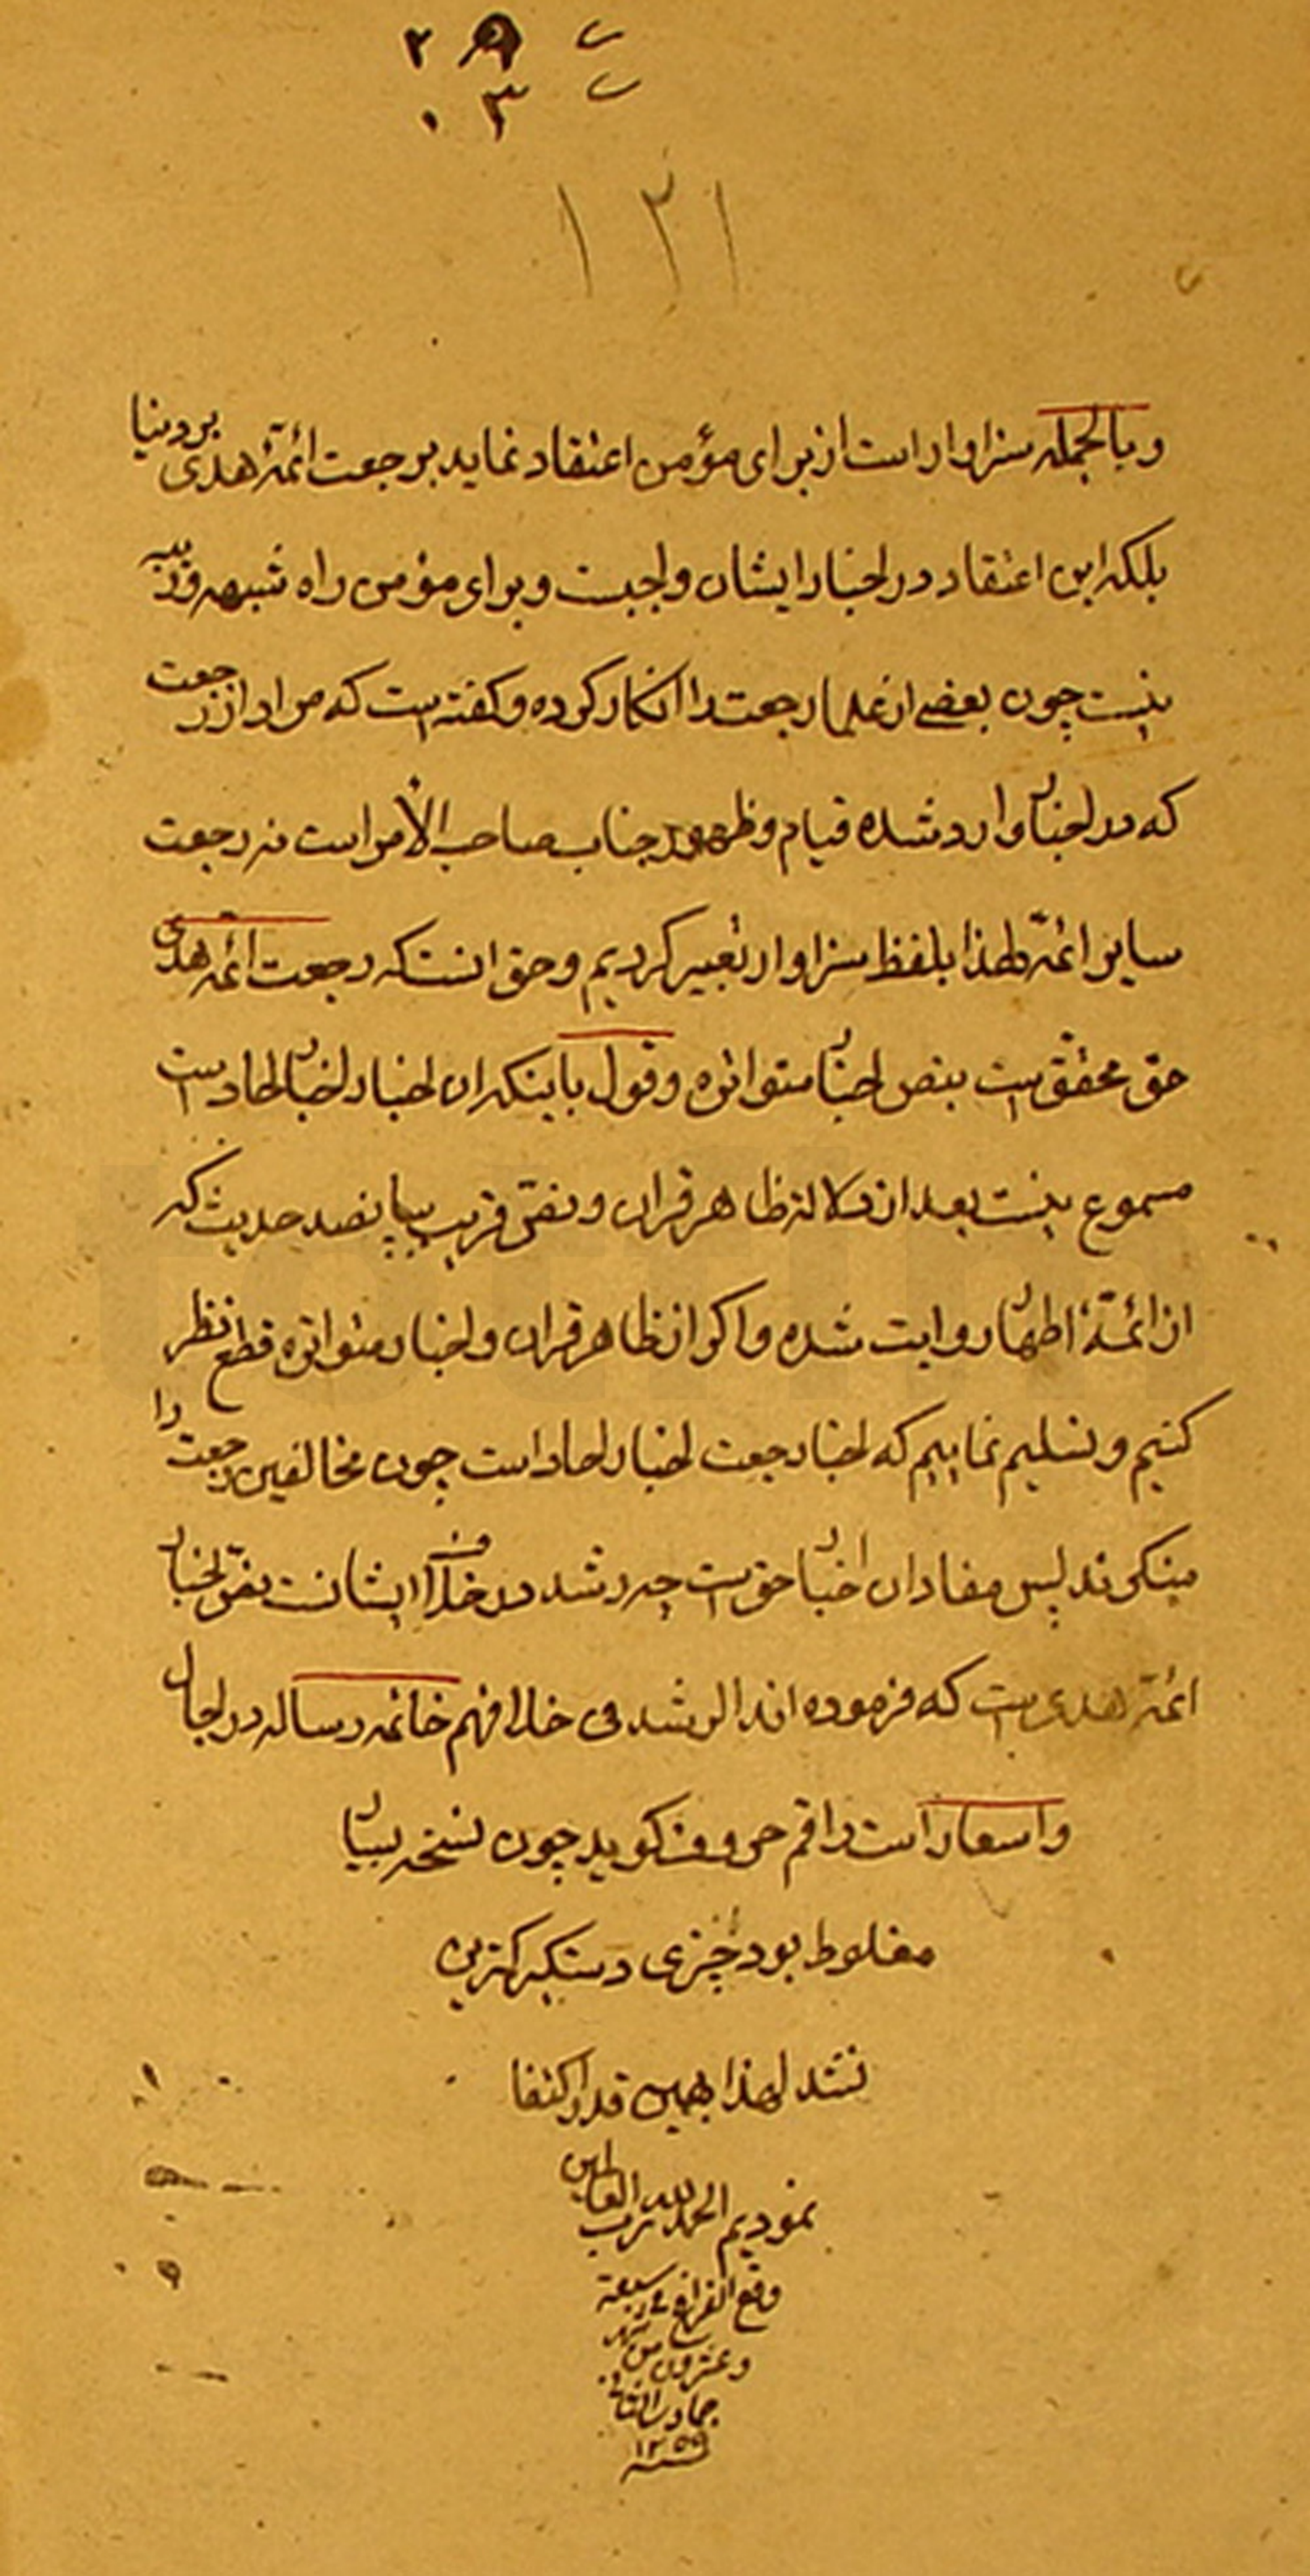 ۲ ۹
۰ ۳
۱۲۱
و بالجمله سزاوار است از برای مؤمن اعتقاد نماید بر جعت ائمۀ هدی بردینا
بلکه این اعتقاد در اخبار ایشان واجبست و برای مؤمن راه شبهه و ریبه
نیست چون بعضی از علما رجعت را انکار کرده و کفته است که مراد از رجعت
که در اخبار وارد شده قیام و ظهور جناب صاحب الامر است نه رجعت
سایر ائمۀ لهذا بلفظ سزاوار تعبیر کردیم و حق انستکه رجعت ائمۀ هدی
حق محقق است بنص اخبار متواتره و قول باینکه ان اخبار اخبار احاد است
مسموع نیست بعد از دلالة ظاهر قران و نقی قریب بپانصد حدیث که
از ائمۀ اطهار روایت شده و اکر از ظاهر قران و اخبار متواتره قطع نظر
کنیم و تسلیم نماییم که اخبار جعت اخبار احاد است چون مخالفین رجعت را
منکرند پس مفاد ان اخبار حق است چه رشد در خلاف ایشانست بنص اخبار
ائمۀ هدی است که فرموده اند الرشد فی خلافهم خاتمه رساله در اجال
و اسعار است راقم حروف کوید چون نسخه بسیار
مغلوط بود چیزی دستکیر کمترین
نشد لهذا بهمین قدر اکتفا
نمودیم الحمد لله رب العالمین
وقع الفراغ فی سبعة
و عشرون من شهر
جمادی الثانی
سنه ۱۲۵۹